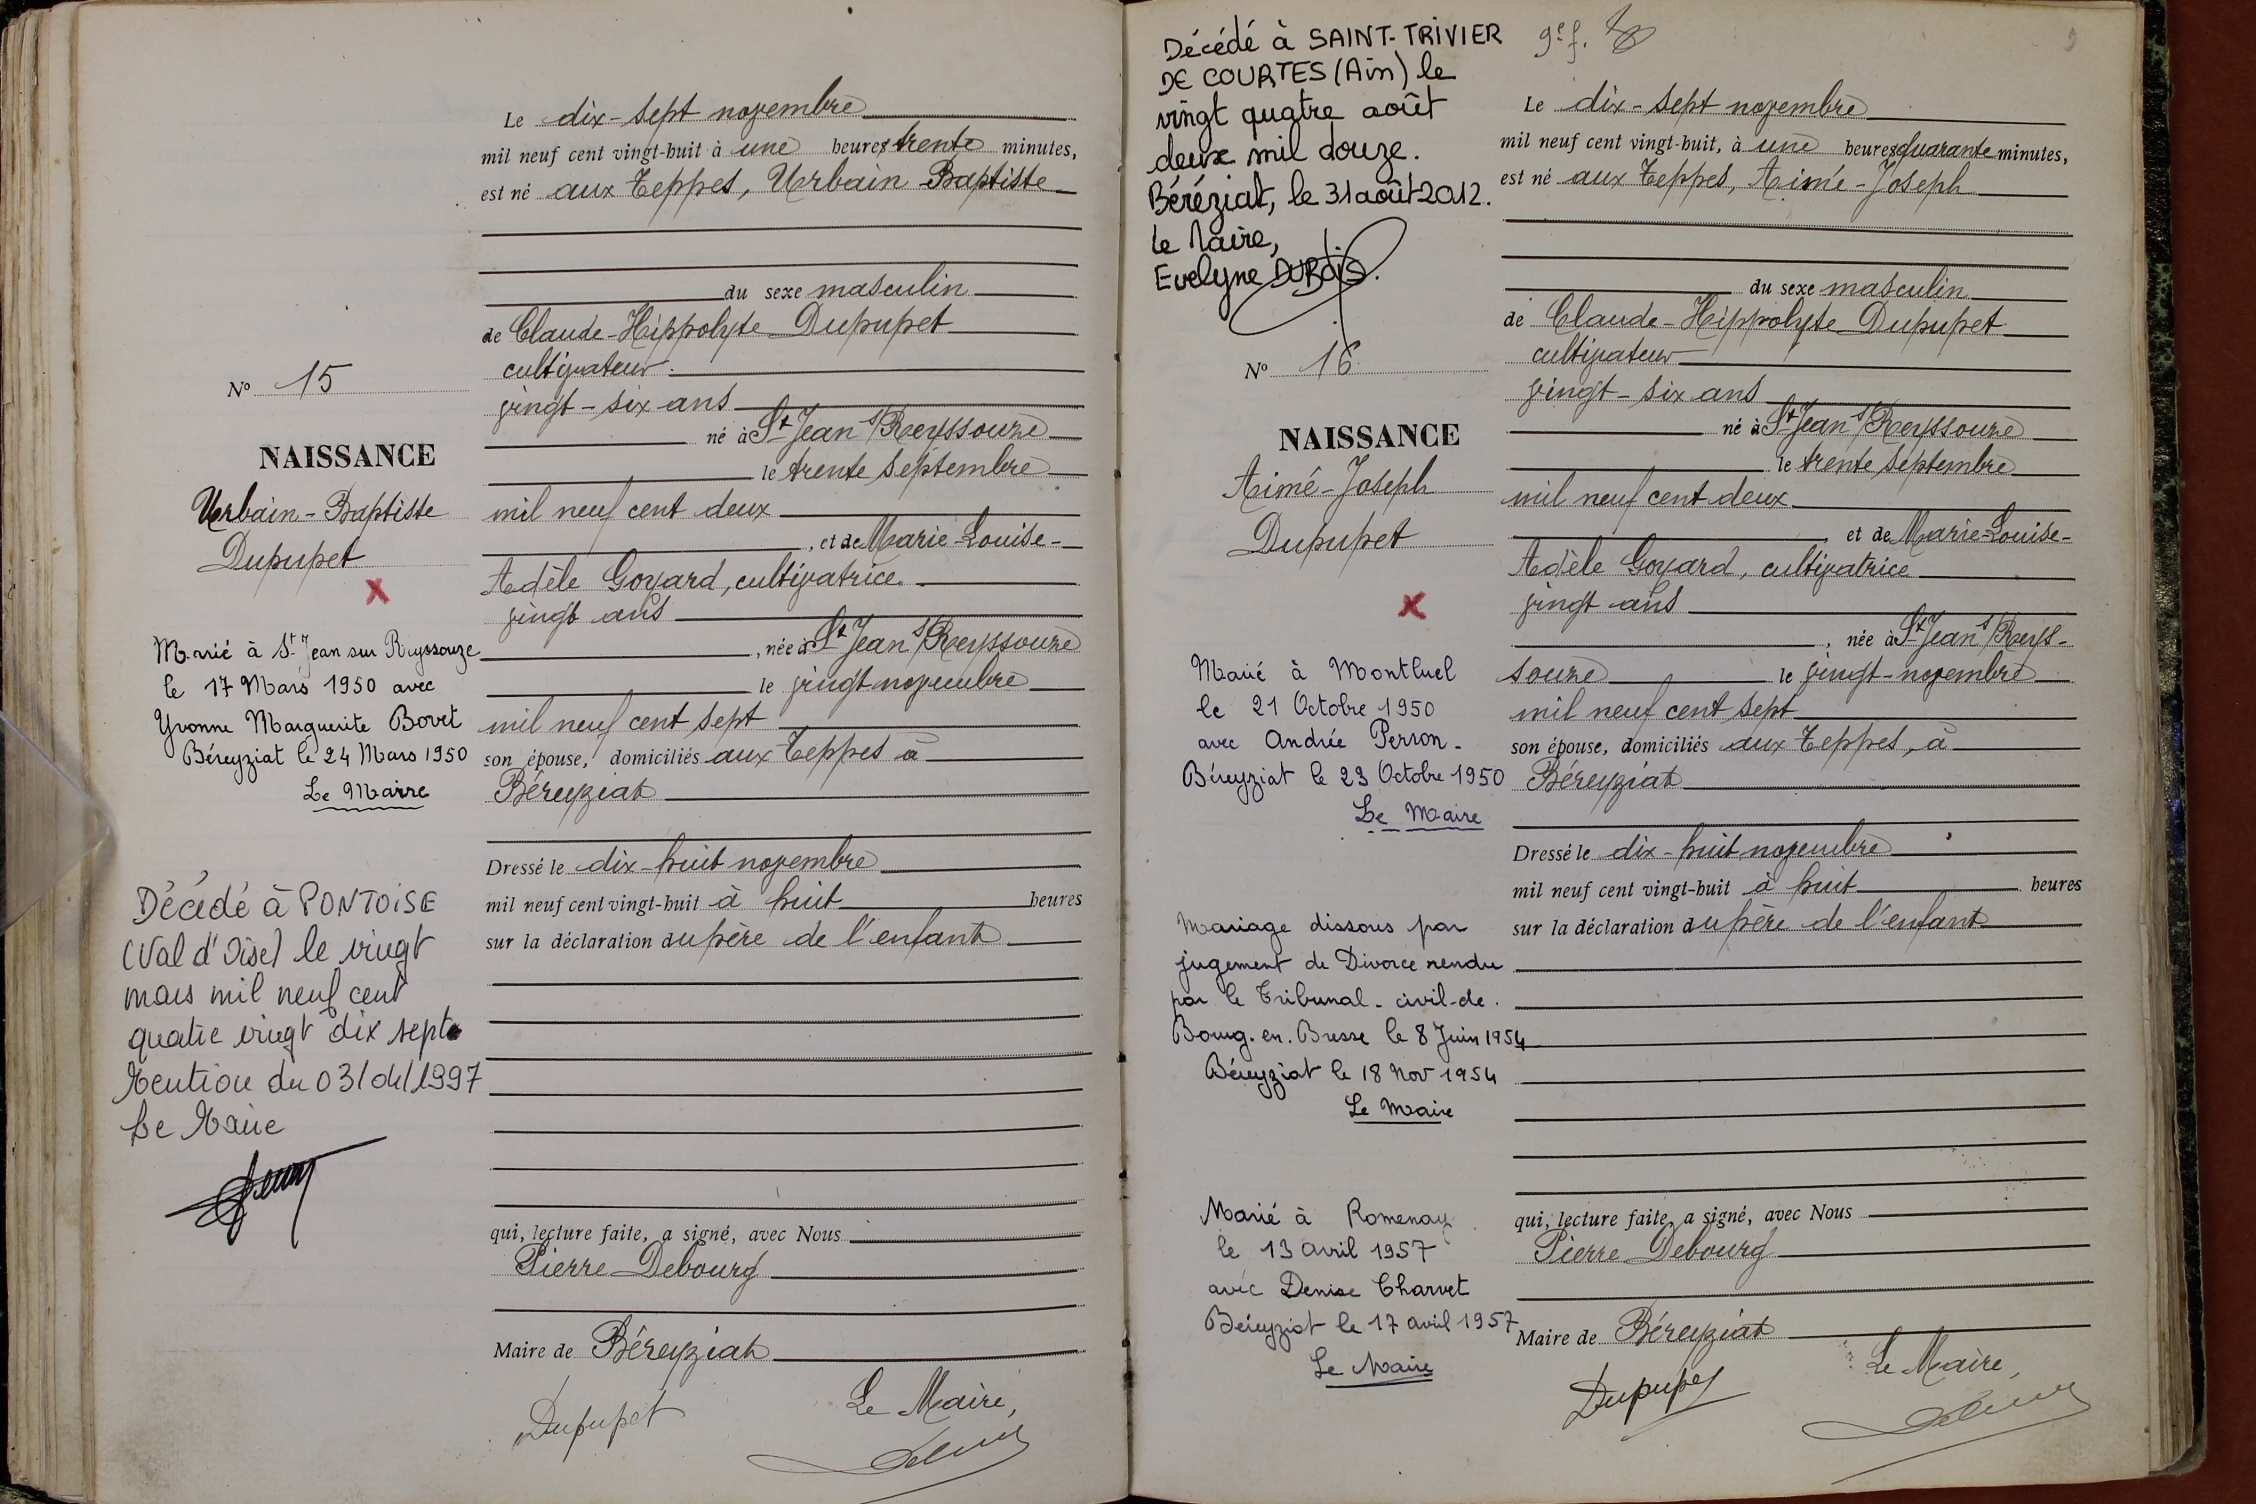 Le dix-sept novembre
mil neuf cent vingt-huit à une heures trente minutes,
est né aux Teppes, Urbain Baptiste
du sexe masculin
de Claude-Hippolyte Dupupet
cultivateur
vingt-six ans
né à St Jean s/Reyssouze
le trente septembre
mil neuf cent deux
, et de Marie-Louise-
Adèle Goyard, cultivatrice
vingt ans
, née à St Jean s/Reyssouze
le vingt novembre
mil neuf cent sept
son épouse, domiciliés aux Teppes à
Béreyziat
Dressé le dix-huit novembre
mil neuf cent vingt-huit à huit heures
sur la déclaration du père de l'enfant
qui, lecture faite, a signé, avec Nous
Pierre Debourg
Maire de Béreyziat
Le Maire,
Dupupet
No 15
NAISSANCE
Urbain-Baptiste
Dupupet
X
Marié à St Jean sur Reyssouze
le 17 Mars 1950 avec
Yvonne Marguerite Bovet
Béreyziat le 24 Mars 1950
Le Maire
Décédé à PONTOISE
(Val d'Oise) le vingt
mars mil neuf cent
quatre vingt dix sept
Mention du 03/04/1997
Le Maire
Décédé à SAINT-TRIVIER
DE COURTES (Ain) le
vingt quatre août
deux mil douze.
Béréziat, le 31 août 2012.
Le Maire,
Evelyne DUBOIS.
No 16
NAISSANCE
Aimé-Joseph
Dupupet
X
Marié à Montluel
le 21 Octobre 1950
avec Andrée Perron.
Béreyziat le 23 Octobre 1950
Le Maire
Mariage dissous par
jugement de Divorce rendu
par le Tribunal civil de
Bourg. en. Bresse le 8 Juin 1954
Béreyziat le 18 Nov 1954
Le Maire
Marié à Romenay
le 13 avril 1957
avec Denise Charvet
Béreyziat le 17 avril 1957
Le Maire
9e f.
9
Le dix-sept novembre
mil neuf cent vingt-huit, à une heures quarante minutes,
est né aux Teppes, Aimé-Joseph
du sexe masculin
de Claude-Hippolyte Dupupet
cultivateur
vingt-six ans
né à St Jean s/Reyssouze
le trente septembre
mil neuf cent deux
et de Marie-Louise-
Adèle Goyard, cultivatrice
vingt ans
, née à St Jean s/Reys-
souze le vingt-novembre
mil neuf cent sept
son épouse, domiciliés aux Teppes, à
Béreyziat
Dressé le dix-huit novembre
mil neuf cent vingt-huit à huit heures
sur la déclaration du père de l'enfant
qui, lecture faite, a signé, avec Nous
Pierre Debourg
Maire de Béreyziat
Le Maire,
Dupupet